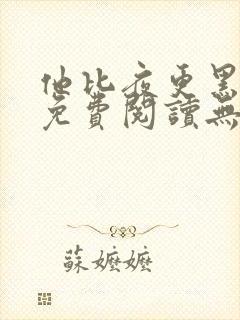 他比夜更黑
免費閱讀無
蘇嬤嬤